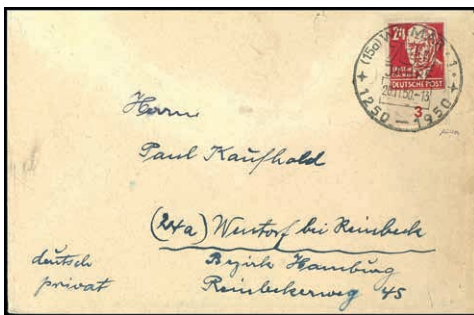 24
DEUTSCHE POST
(15a) WEIMAR 1
1250 — 1950
3
Herrn
Paul Kaufhold
(24a) Wentorf bei Reinbeck
Bezirk Hamburg
Reinbeckerweg 45
deutsch
privat